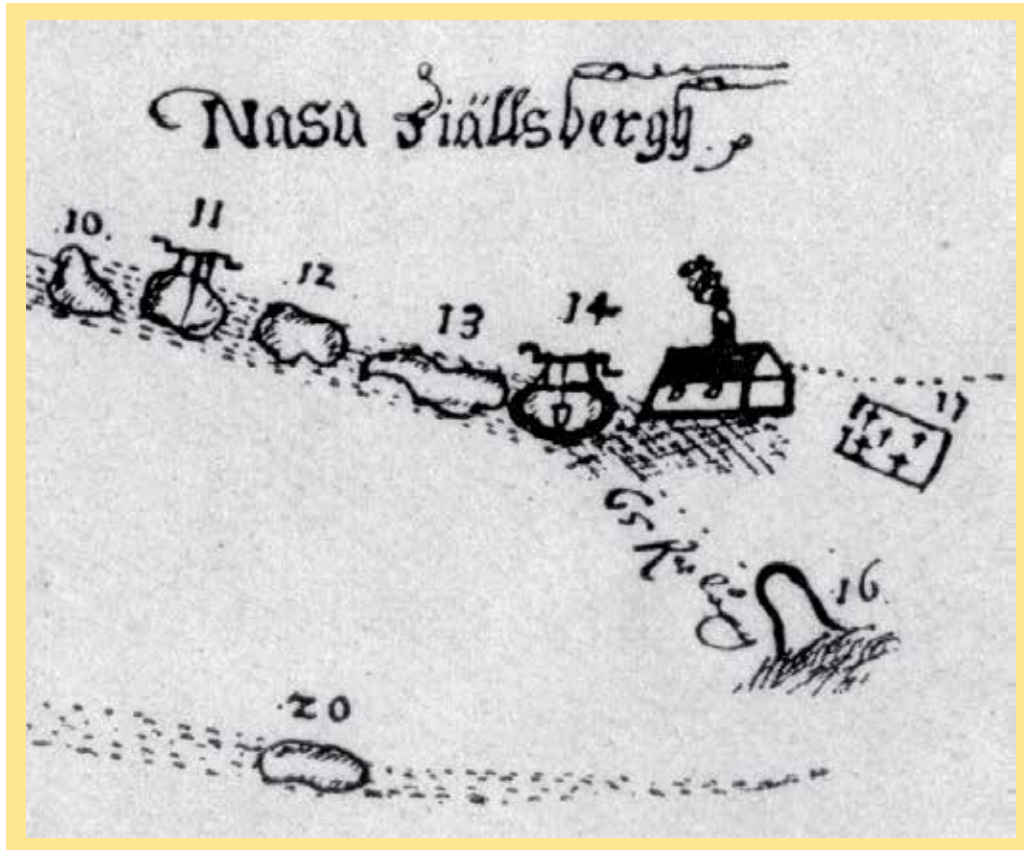 Nasa Fiällsbergh
10.
11
12
13
14
17
65
16
20